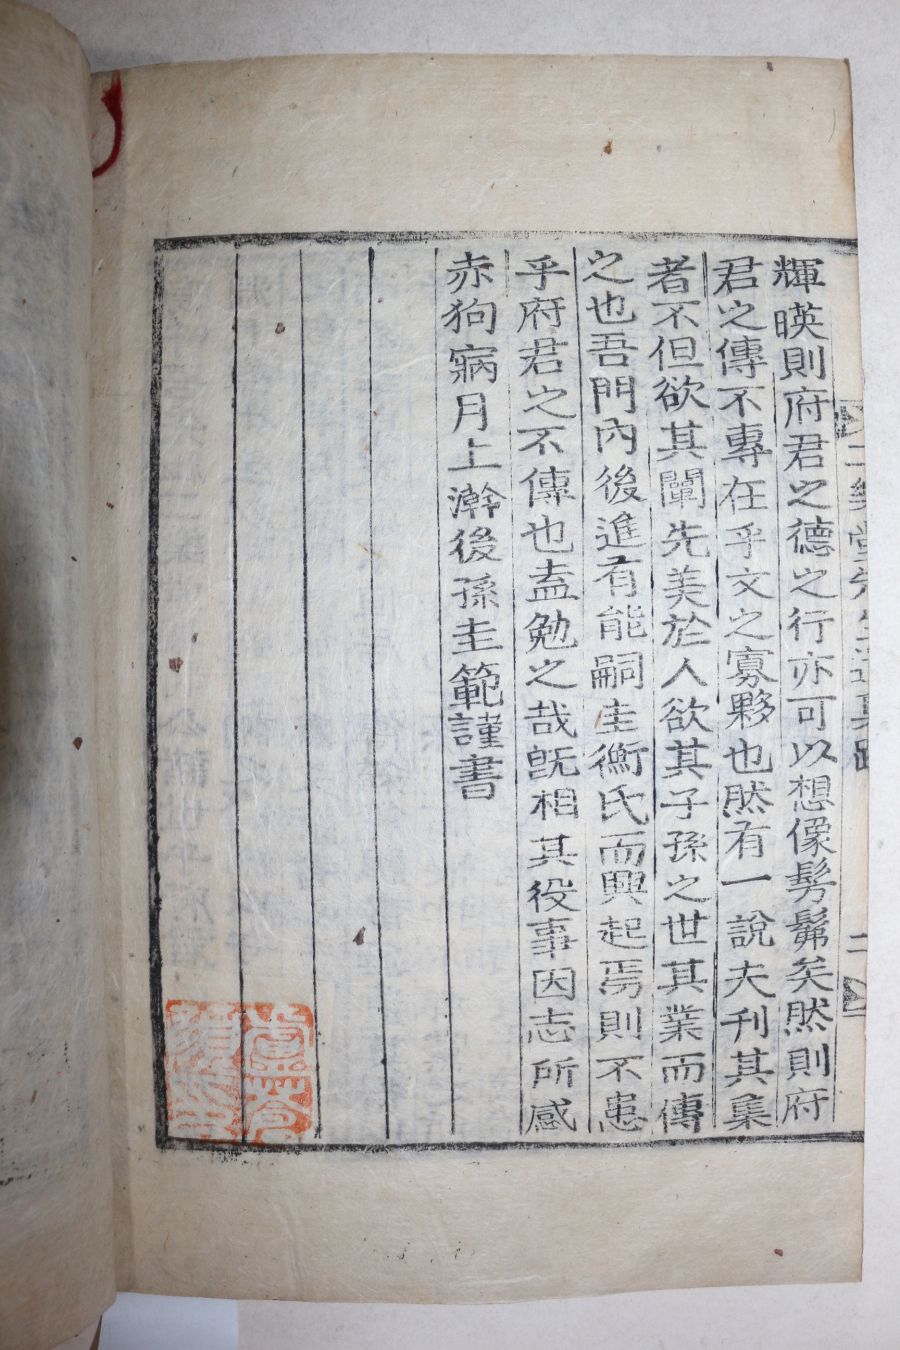 輝暎則府君之德之行亦可以想像髣髴矣然則府
君之傳不專在乎文之寡夥也然有一說夫刊其集
者不但欲其闡先美於人欲其子孫之世其業而傳
之也吾門內後進有能嗣圭衡氏而興起焉則不患
乎府君之不傳也盍勉之哉旣相其役事因志所感
赤狗寎月上澣後孫圭範謹書
樂堂先生
二